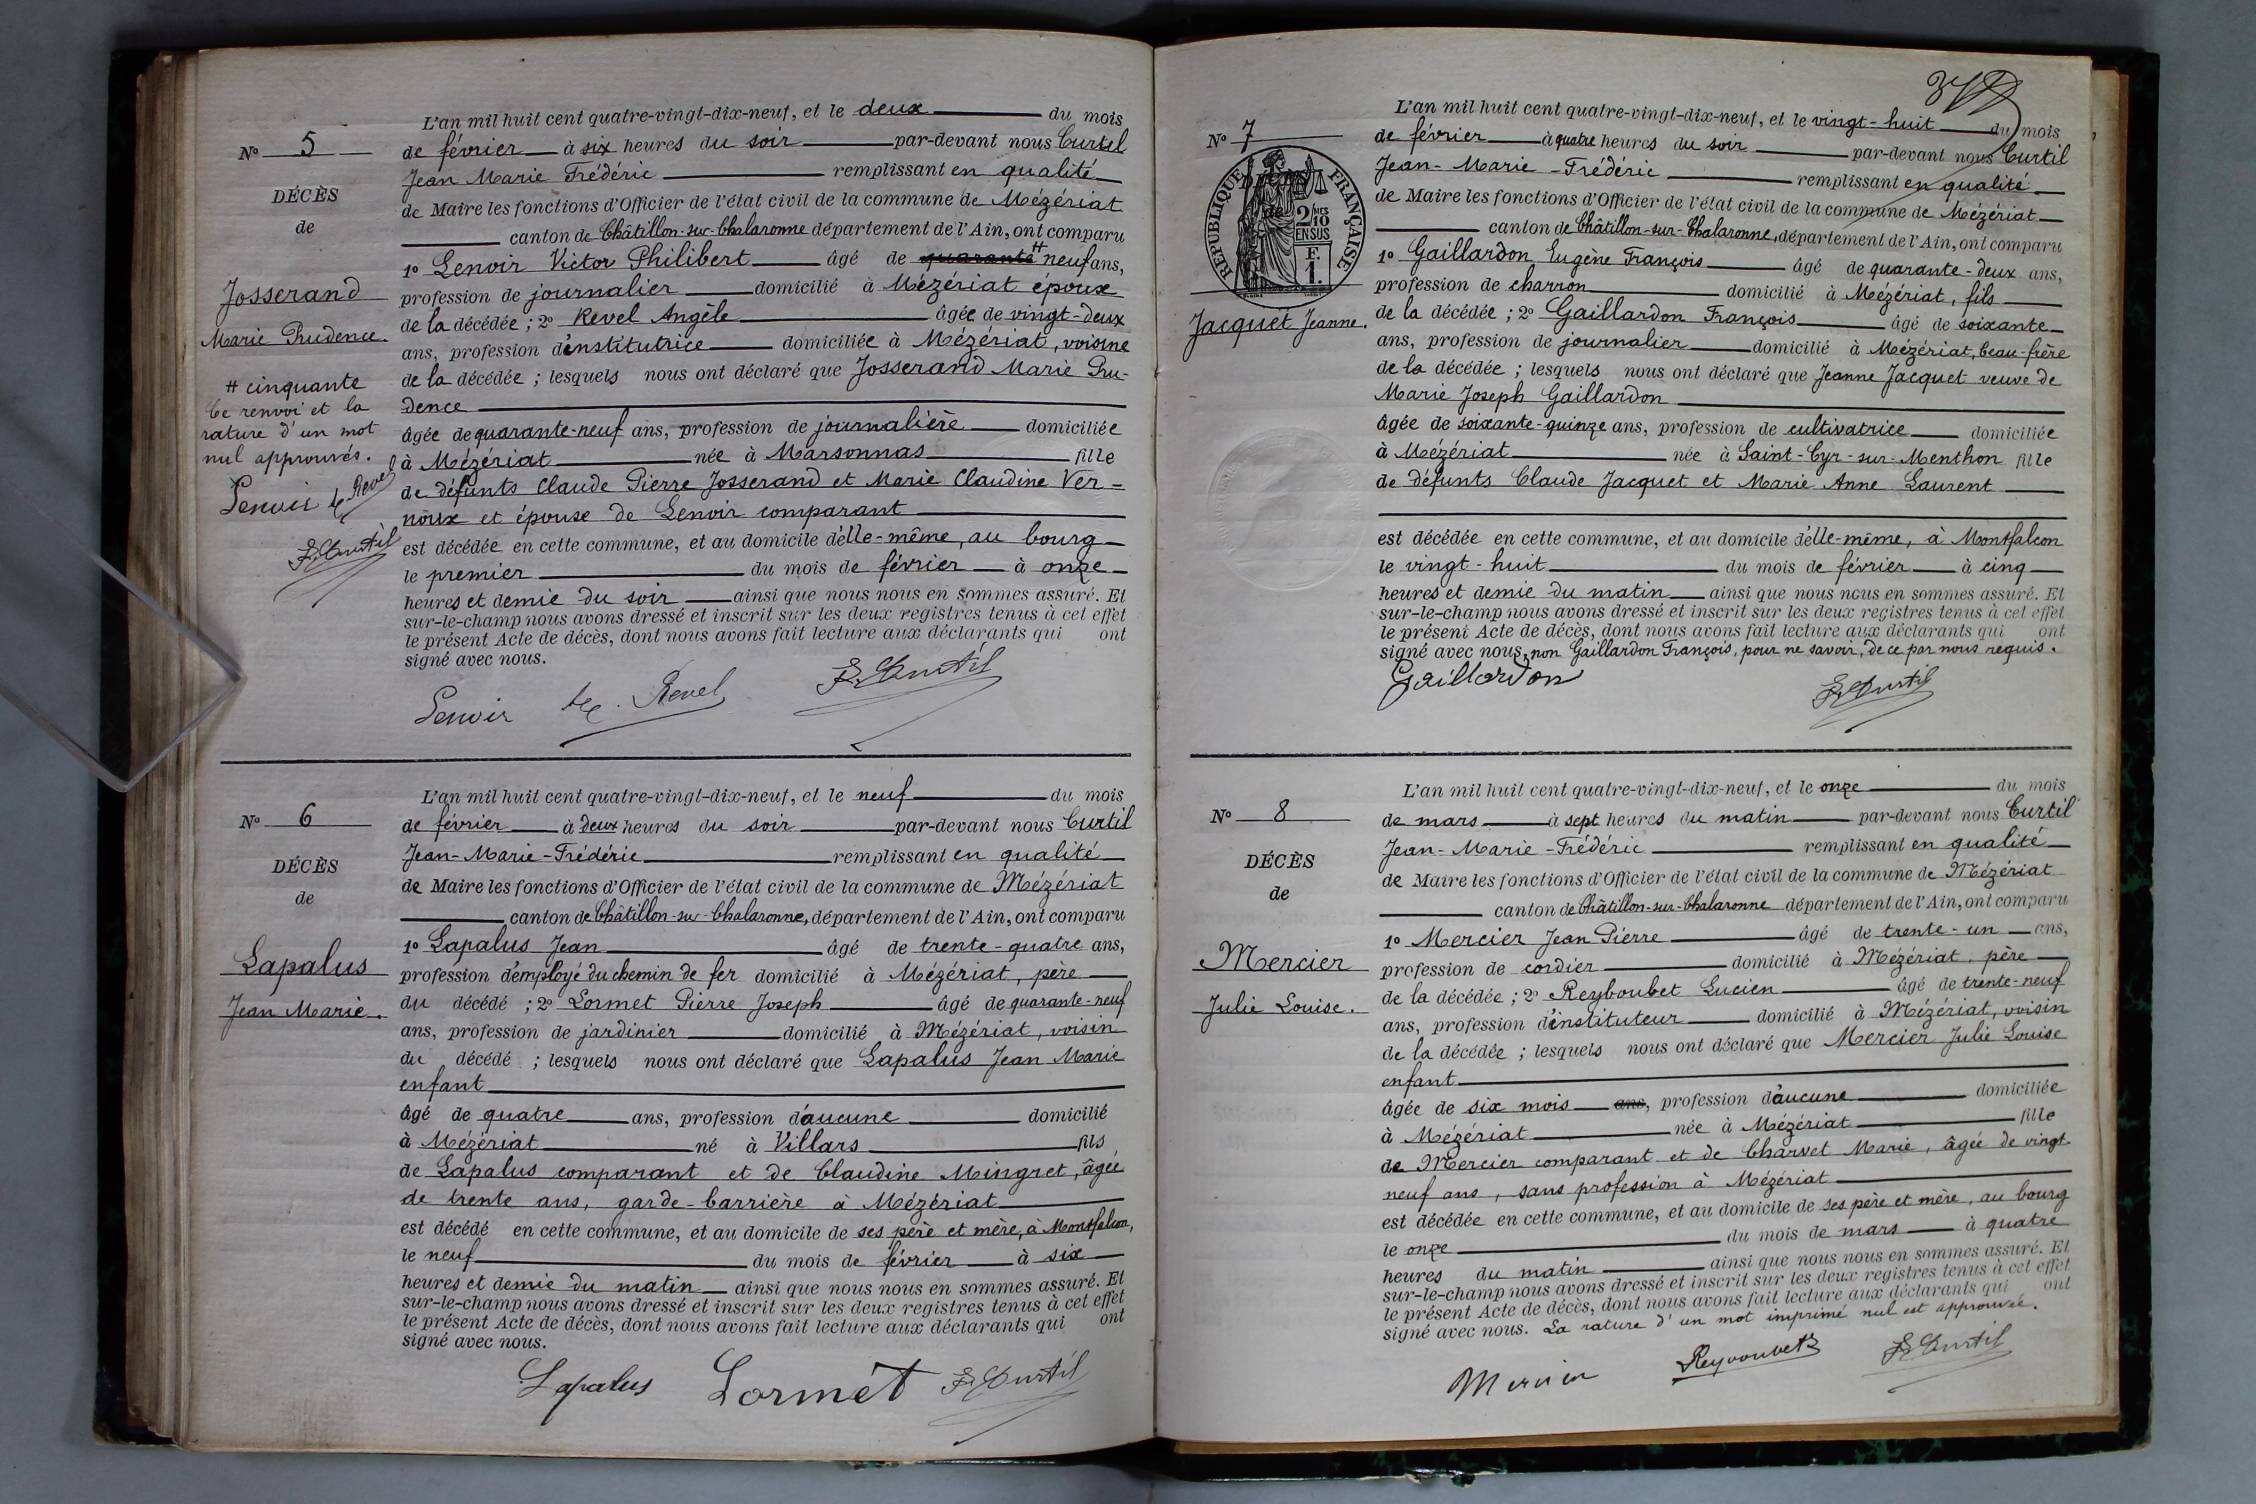 N° 5
DÉCÈS
de
Josserand
Marie Prudence.
# cinquante
Ce renvoi et la
rature d'un mot
nul approuvés.
Lenoir A. Revel
F. Curtil
L'an mil huit cent quatre-vingt-dix-neuf, et le deux du mois
de février à six heures du soir par-devant nous Curtil
Jean Marie Frédéric remplissant en qualité
de Maire les fonctions d'Officier de l'état civil de la commune de Mézériat
canton de Châtillon-sur-Chalaronne département de l'Ain, ont comparu
1° Lenoir Victor Philibert âgé de quarante # neuf ans,
profession de journalier domicilié à Mézériat époux
de la décédée ; 2° Revel Angèle âgée de vingt-deux
ans, profession d'institutrice domiciliée à Mézériat, voisine
de la décédée ; lesquels nous ont déclaré que Josserand Marie Pru-
dence
âgée de quarante-neuf ans, profession de journalière domiciliée
à Mézériat née à Marsonnas fille
de défunts Claude Pierre Josserand et Marie Claudine Ver-
noux et épouse de Lenoir comparant
est décédée en cette commune, et au domicile d'elle-même, au bourg
le premier du mois de février à onze
heures et demie du soir ainsi que nous nous en sommes assuré. Et
sur-le-champ nous avons dressé et inscrit sur les deux registres tenus à cet effet
le présent Acte de décès, dont nous avons fait lecture aux déclarants qui ont
signé avec nous.
Lenoir Revel F. Curtil
N° 6
DÉCÈS
de
Lapalus
Jean Marie.
L'an mil huit cent quatre-vingt-dix-neuf, et le neuf du mois
de février à deux heures du soir par-devant nous Curtil
Jean-Marie-Frédéric remplissant en qualité
de Maire les fonctions d'Officier de l'état civil de la commune de Mézériat
canton de Châtillon-sur-Chalaronne, département de l'Ain, ont comparu
1° Lapalus Jean âgé de trente-quatre ans,
profession d'employé du chemin de fer domicilié à Mézériat, père
du décédé ; 2° Lormet Pierre Joseph âgé de quarante-neuf
ans, profession de jardinier domicilié à Mézériat, voisin
du décédé ; lesquels nous ont déclaré que Lapalus Jean Marie
enfant
âgé de quatre ans, profession d'aucune domicilié
à Mézériat né à Villars fils
de Lapalus comparant et de Claudine Mingret, âgée
de trente ans, garde-barrière à Mézériat
est décédé en cette commune, et au domicile de ses père et mère, à Montfalcon,
le neuf du mois de février à six
heures et demie du matin ainsi que nous nous en sommes assuré. Et
sur-le-champ nous avons dressé et inscrit sur les deux registres tenus à cet effet
le présent Acte de décès, dont nous avons fait lecture aux déclarants qui ont
signé avec nous.
Lapalus Lormet F. Curtil
N° 7
DÉCÈS
de
RÉPUBLIQUE FRANÇAISE
2/10MES
EN SUS
F.
1.
Jacquet Jeanne.
L'an mil huit cent quatre-vingt-dix-neuf, et le vingt-huit du mois
de février à quatre heures du soir par-devant nous Curtil
Jean-Marie-Frédéric remplissant en qualité
de Maire les fonctions d'Officier de l'état civil de la commune de Mézériat
canton de Châtillon-sur-Chalaronne, département de l'Ain, ont comparu
1° Gaillardon Eugène François âgé de quarante-deux ans,
profession de charron domicilié à Mézériat, fils
de la décédée ; 2° Gaillardon François âgé de soixante
ans, profession de journalier domicilié à Mézériat, beau-frère
de la décédée ; lesquels nous ont déclaré que Jeanne Jacquet veuve de
Marie Joseph Gaillardon
âgée de soixante-quinze ans, profession de cultivatrice domiciliée
à Mézériat née à Saint-Cyr-sur-Menthon fille
de défunts Claude Jacquet et Marie Anne Laurent
est décédée en cette commune, et au domicile d'elle-même, à Montfalcon
le vingt-huit du mois de février à cinq
heures et demie du matin ainsi que nous nous en sommes assuré. Et
sur-le-champ nous avons dressé et inscrit sur les deux registres tenus à cet effet
le présent Acte de décès, dont nous avons fait lecture aux déclarants qui ont
signé avec nous, non Gaillardon François, pour ne savoir, de ce par nous requis.
Gaillardon F. Curtil
N° 8
DÉCÈS
de
Mercier
Julie Louise.
L'an mil huit cent quatre-vingt-dix-neuf, et le onze du mois
de mars à sept heures du matin par-devant nous Curtil
Jean-Marie-Frédéric remplissant en qualité
de Maire les fonctions d'Officier de l'état civil de la commune de Mézériat
canton de Châtillon-sur-Chalaronne département de l'Ain, ont comparu
1° Mercier Jean Pierre âgé de trente-un ans,
profession de cordier domicilié à Mézériat, père
de la décédée ; 2° Reyboubet Lucien âgé de trente-neuf
ans, profession d'instituteur domicilié à Mézériat, voisin
de la décédée ; lesquels nous ont déclaré que Mercier Julie Louise
enfant
âgée de six mois ans, profession d'aucune domiciliée
à Mézériat née à Mézériat fille
de Mercier comparant et de Charvet Marie, âgée de vingt
neuf ans, sans profession à Mézériat
est décédée en cette commune, et au domicile de ses père et mère, au bourg
le onze du mois de mars à quatre
heures du matin ainsi que nous nous en sommes assuré. Et
sur-le-champ nous avons dressé et inscrit sur les deux registres tenus à cet effet
le présent Acte de décès, dont nous avons fait lecture aux déclarants qui ont
signé avec nous. La rature d'un mot imprimé nul est approuvée.
Mercier Reyboubet F. Curtil